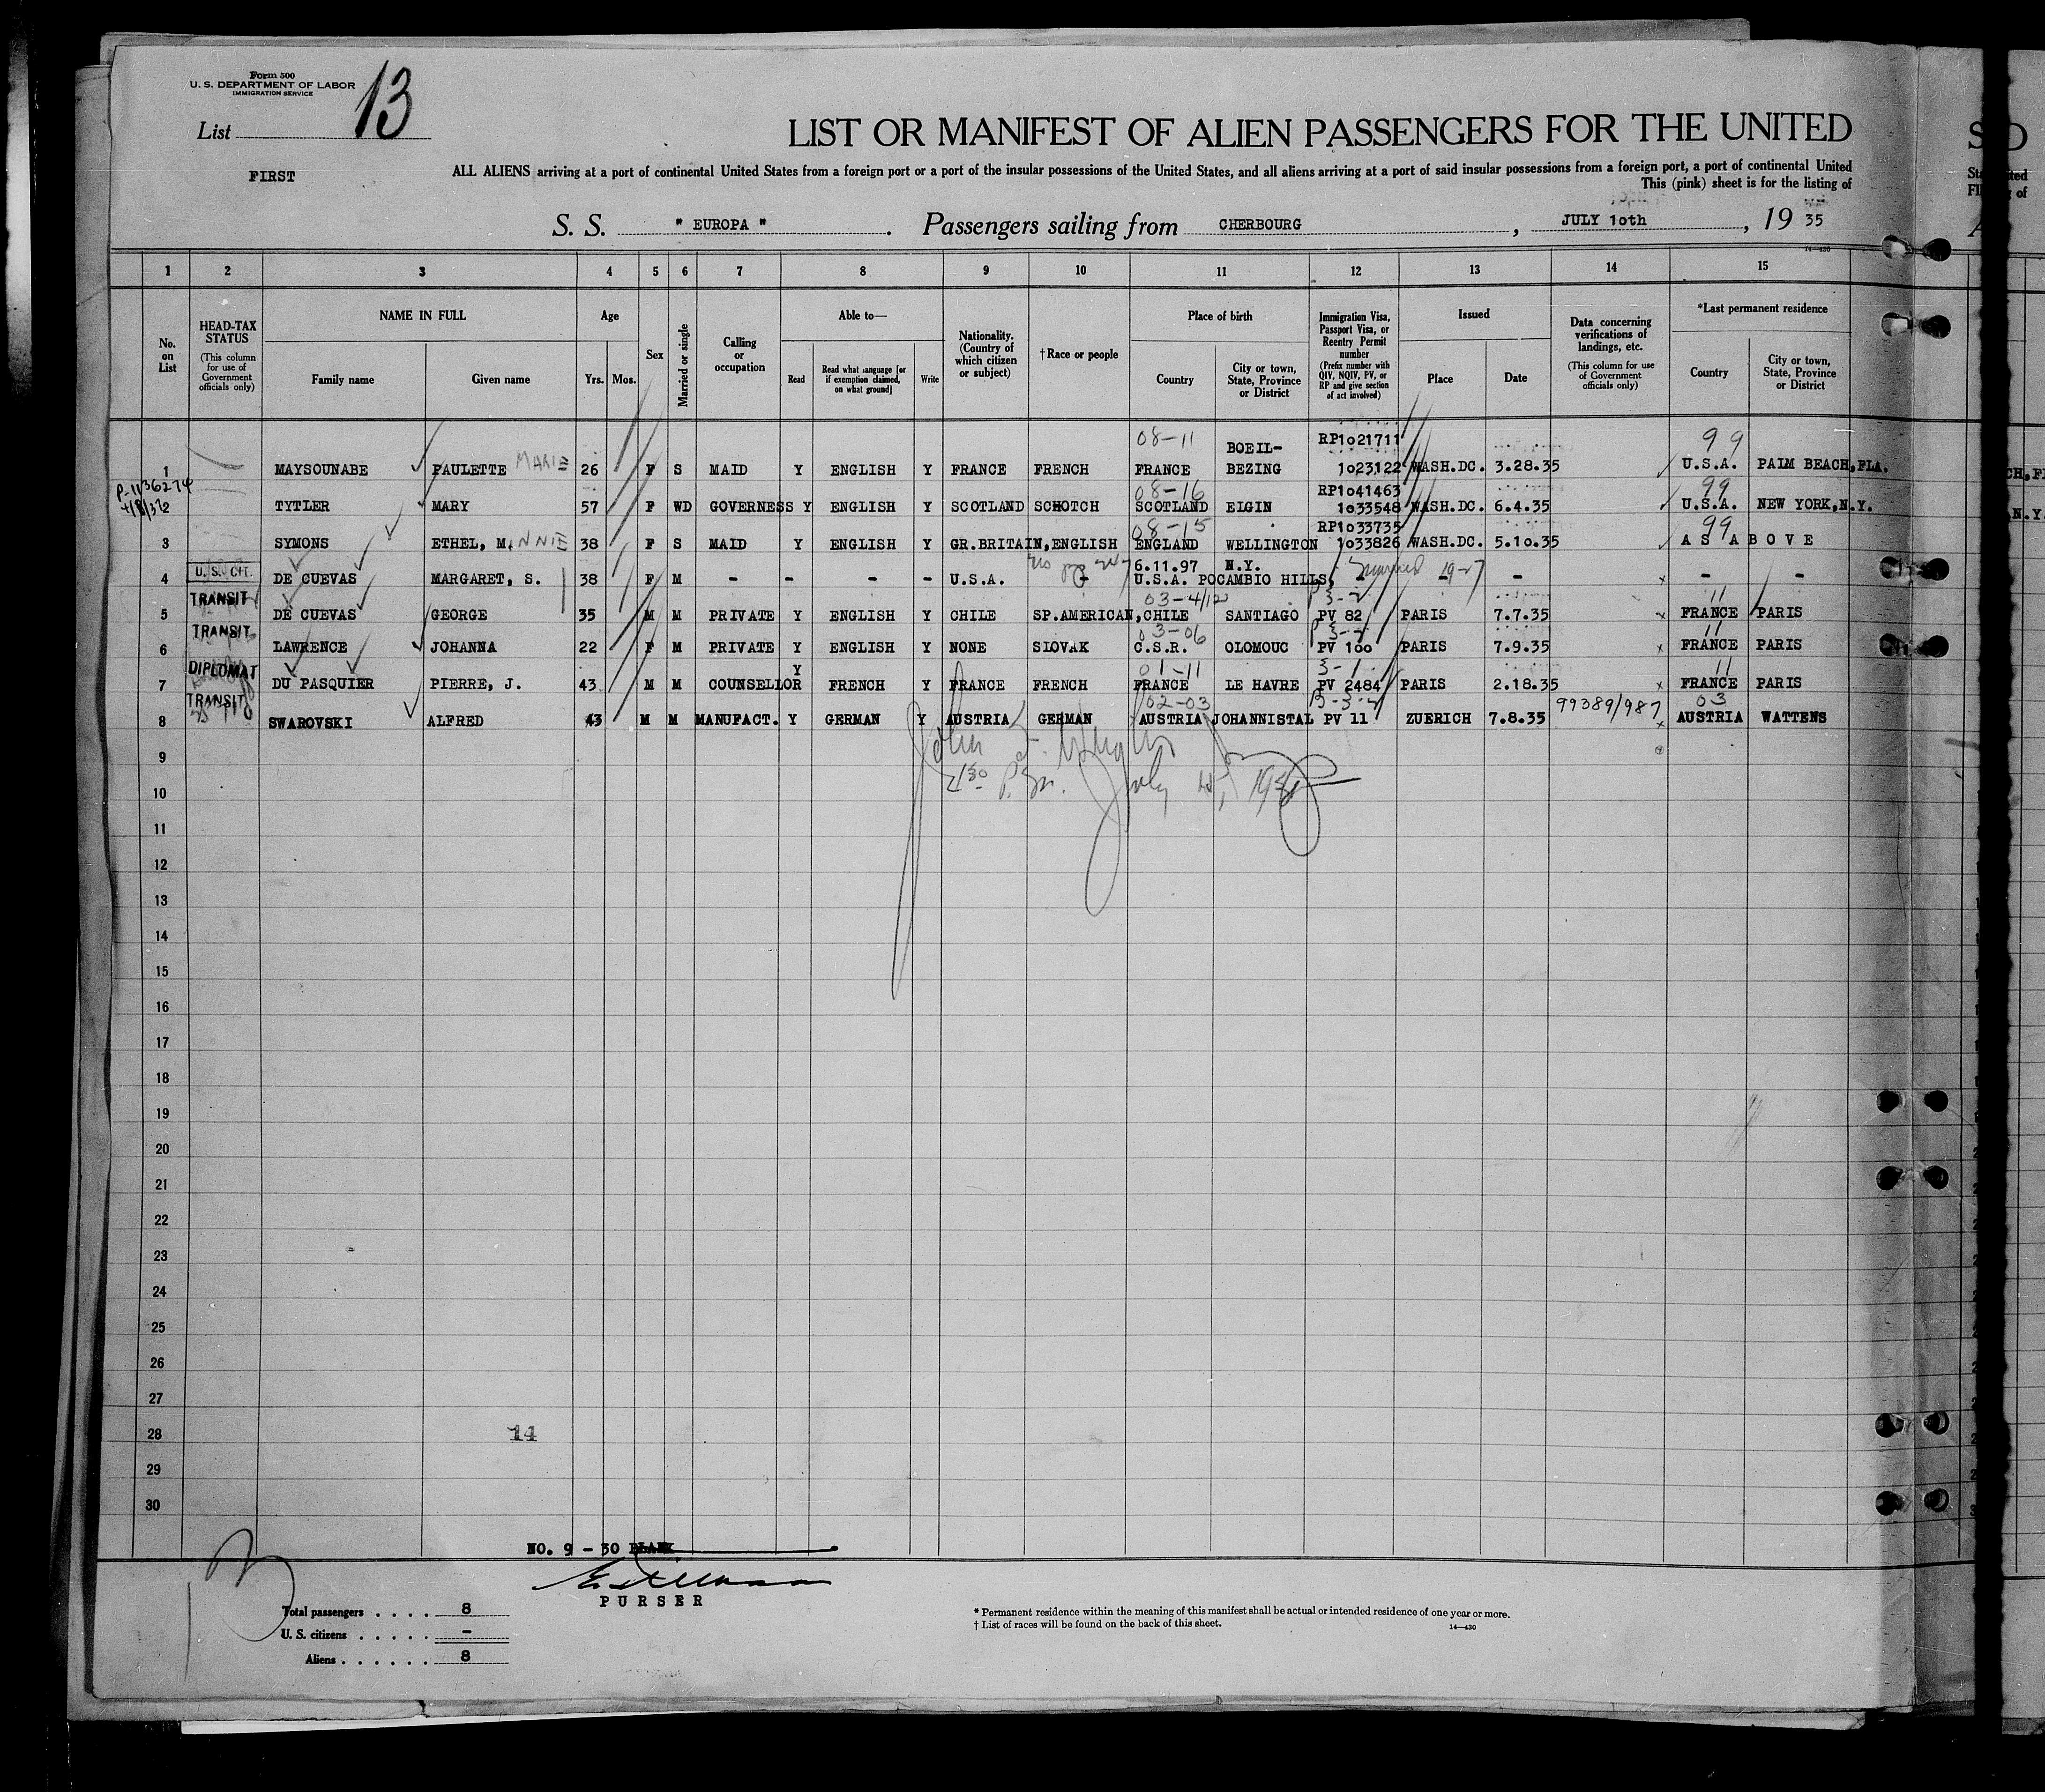 Form 500
U. S. DEPARTMENT OF LABOR
IMMIGRATION SERVICE
List 13
LIST OR MANIFEST OF ALIEN PASSENGERS FOR THE UNITED
FIRST
ALL ALIENS arriving at a port of continental United States from a foreign port or a port of the insular possessions of the United States, and all aliens arriving at a port of said insular possessions from a foreign port, a port of continental United
This (pink) sheet is for the listing of
S. S. " EUROPA " . Passengers sailing from CHERBOURG , JULY 10th , 19 35
14—430
1 2 3 4 5 6 7 8 9 10 11 12 13 14 15
No. on List
HEAD-TAX STATUS
(This column for use of Government officials only)
NAME IN FULL
Family name Given name
Age
Yrs. Mos.
Sex
Married or single
Calling or occupation
Able to—
Read Read what language [or if exemption claimed, on what ground] Write
Nationality. (Country of which citizen or subject)
†Race or people
Place of birth
Country City or town, State, Province or District
Immigration Visa, Passport Visa, or Reentry Permit number
(Prefix number with QIV, NQIV, PV, or RP and give section of act involved)
Issued
Place Date
Data concerning verifications of landings, etc.
(This column for use of Government officials only)
*Last permanent residence
Country City or town, State, Province or District
08-11 BOEIL- RP1021711 99
1 MAYSOUNABE PAULETTE MARIE 26 F S MAID Y ENGLISH Y FRANCE FRENCH FRANCE BEZING 1023122 WASH.DC. 3.28.35 U.S.A. PALM BEACH,FLA.
P-1136274 08-16 RP1041463 99
2 TYTLER MARY 57 F WD GOVERNESS Y ENGLISH Y SCOTLAND SCHOTCH SCOTLAND ELGIN 1033548 WASH.DC. 6.4.35 U.S.A. NEW YORK,N.Y.
08-15 RP1033735 99
3 SYMONS ETHEL, M. NNIE 38 F S MAID Y ENGLISH Y GR.BRITAIN,ENGLISH ENGLAND WELLINGTON 1033826 WASH.DC. 5.10.35 AS ABOVE
U. S. CIT. 6.11.97 N.Y. married 1927
4 DE CUEVAS MARGARET, S. 38 F M - - - - U.S.A. - U.S.A. POCAMBIO HILLS, - - - - -
TRANSIT 03-4/12 11
5 DE CUEVAS GEORGE 35 M M PRIVATE Y ENGLISH Y CHILE SP.AMERICAN,CHILE SANTIAGO PV 82 PARIS 7.7.35 FRANCE PARIS
TRANSIT 03-06 11
6 LAWRENCE JOHANNA 22 F M PRIVATE Y ENGLISH Y NONE SLOVAK C.S.R. OLOMOUC PV 100 PARIS 7.9.35 FRANCE PARIS
DIPLOMAT Y 01-11 3-1 11
7 DU PASQUIER PIERRE, J. 43 M M COUNSELLOR FRENCH Y FRANCE FRENCH FRANCE LE HAVRE PV 2484 PARIS 2.18.35 FRANCE PARIS
TRANSIT 02-03 99389/987 03
8 SWAROVSKI ALFRED 43 M M MANUFACT. Y GERMAN Y AUSTRIA GERMAN AUSTRIA JOHANNISTAL PV 11 ZUERICH 7.8.35 AUSTRIA WATTENS
9
10
11
12
13
14
15
16
17
18
19
20
21
22
23
24
25
26
27
28 14
29
30
NO. 9 - 30 BLANK
PURSER
Total passengers . . . . 8
U. S. citizens . . . . . -
Aliens . . . . . . 8
* Permanent residence within the meaning of this manifest shall be actual or intended residence of one year or more.
† List of races will be found on the back of this sheet.
14—430